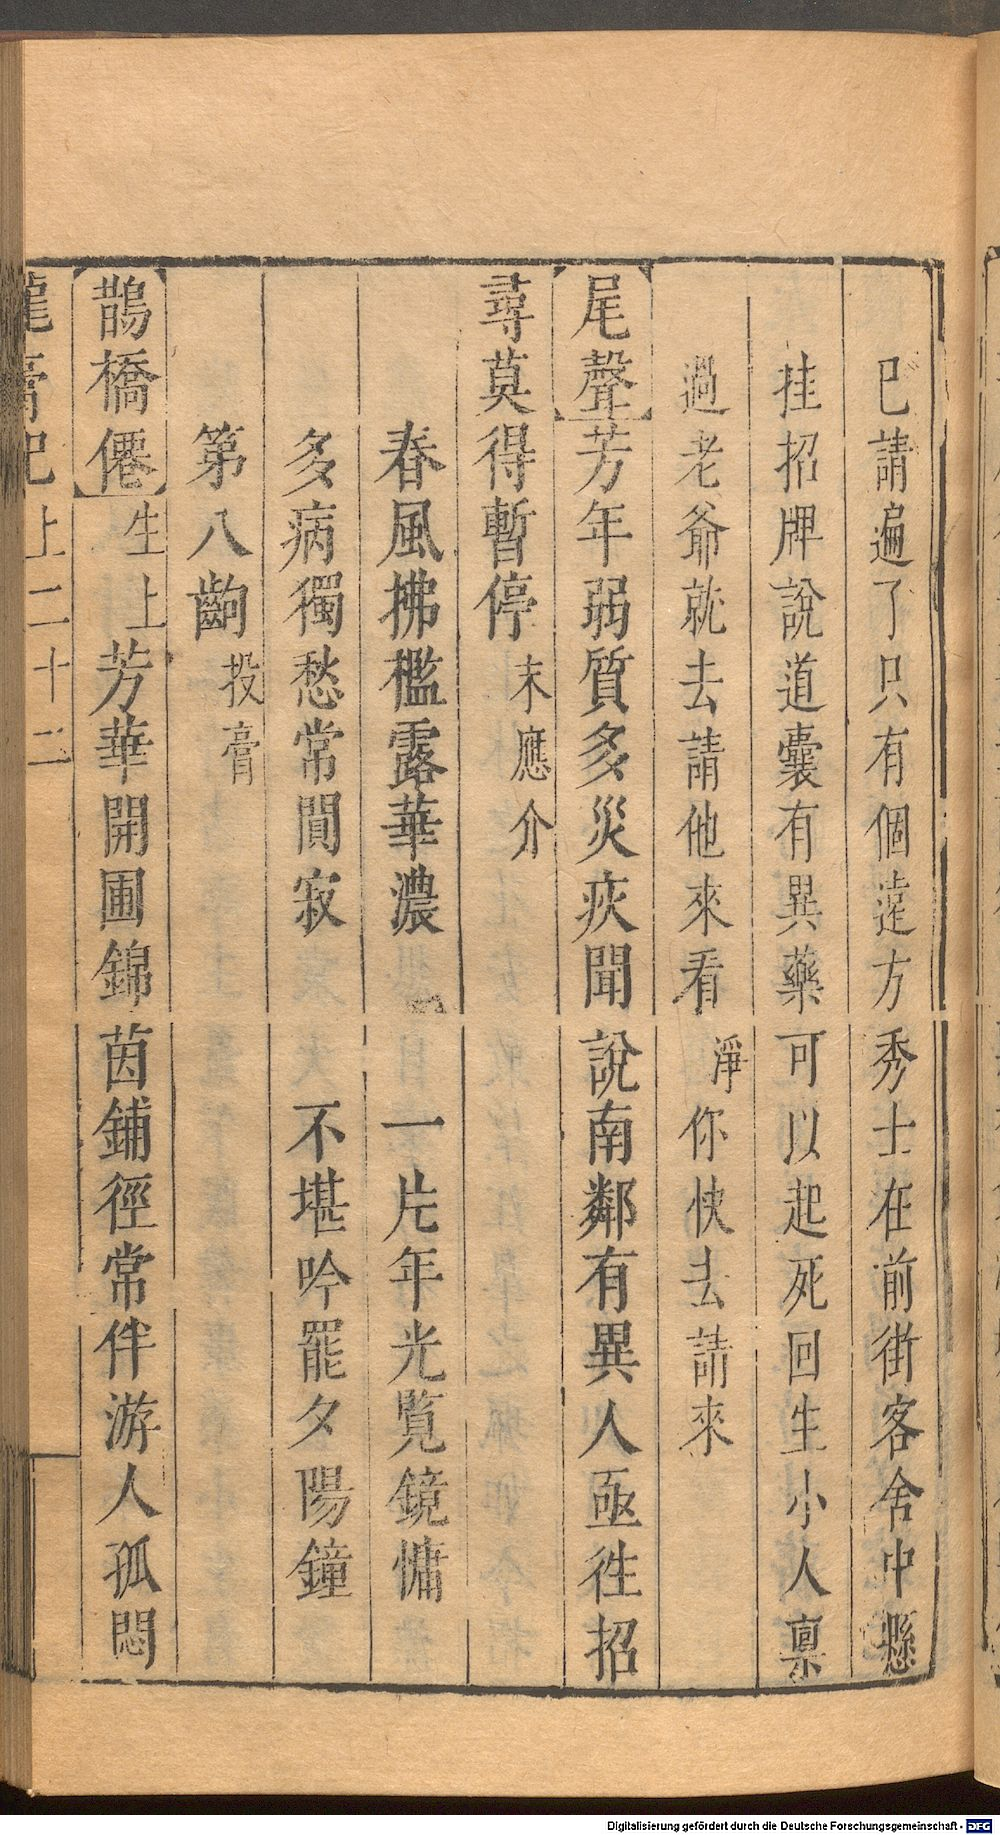 已請遍了只有個遠方秀士在前街客舍中懸
挂招牌說道囊有異藥可以起死回生小人稟
過老爺就去請他來看淨你快去請來
尾聲芳年弱質多災疾聞說南鄰有異人亟徃招
尋莫得暫停末應介
春風拂檻露華濃 一片年光覧鏡慵
多病獨愁常閴寂 不堪吟罷夕陽鐘
第八齣投膏
鵲橋僊生上芳華開圃錦茵鋪徑常伴游人孤悶
龍膏記上二十二
Digitalisierung gefördert durch die Deutsche Forschungsgemeinschaft - DFG